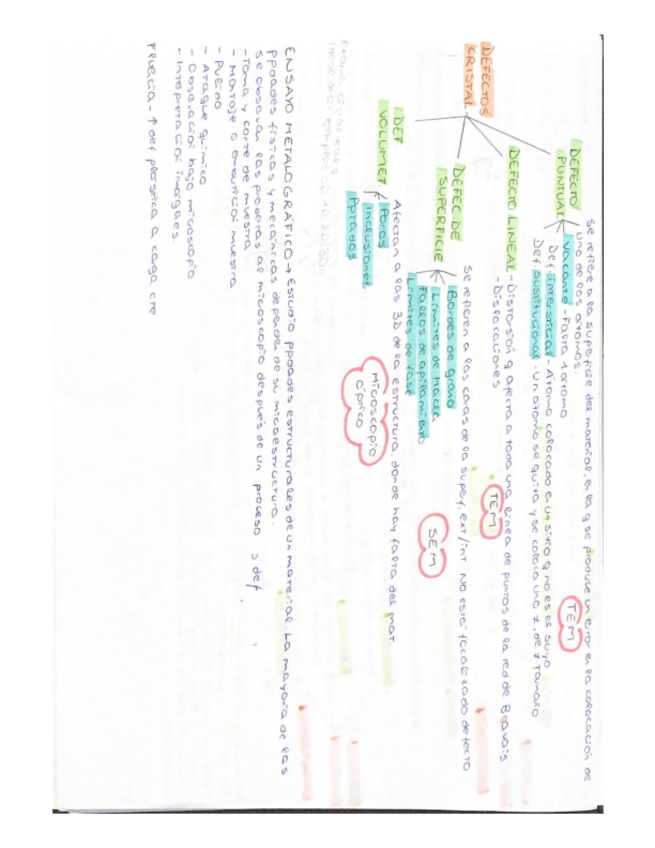 Se refiere a la superficie del material, en la q se produce un error en la colocación de
uno de los átomos.
DEFECTO
PUNTUAL
Vacante - Falta 1 átomo
Def. intersticial - Átomo colocado en un sitio q no es el suyo
Def. sustitucional - Un átomo se quita y se coloca uno ≠, de ≠ tamaño
TEM
DEFECTOS
CRISTAL
DEFECTO LINEAL - Distorsión q afecta a toda una línea de puntos de la red de Bravais
- Dislocaciones
TEM
Se refieren a las caras de la superf. ext/int. No está focalizado defecto
DEFEC DE
SUPERFICIE
Bordes de grano
Límites de macla
Fallos de apilamiento
Límites de fase
SEM
Afectan a las 3D de la estructura, donde hay falta del mat.
DEF.
VOLUMET.
Poros
Inclusiones
Pptados
Microscopio
óptico
ENSAYO METALOGRÁFICO → Estudio ppdades estructurales de un material. La mayoría de las
ppdades físicas y mecánicas dependen de su microestructura.
Se observan las probetas al microscopio después de un proceso
def
- Toma y corte de muestra
- Montaje o embutición muestra
- Pulido
- Ataque químico
- Observación bajo microscopio
- Interpretación imágenes.
Fluencia. ↑ def plástica a carga cte